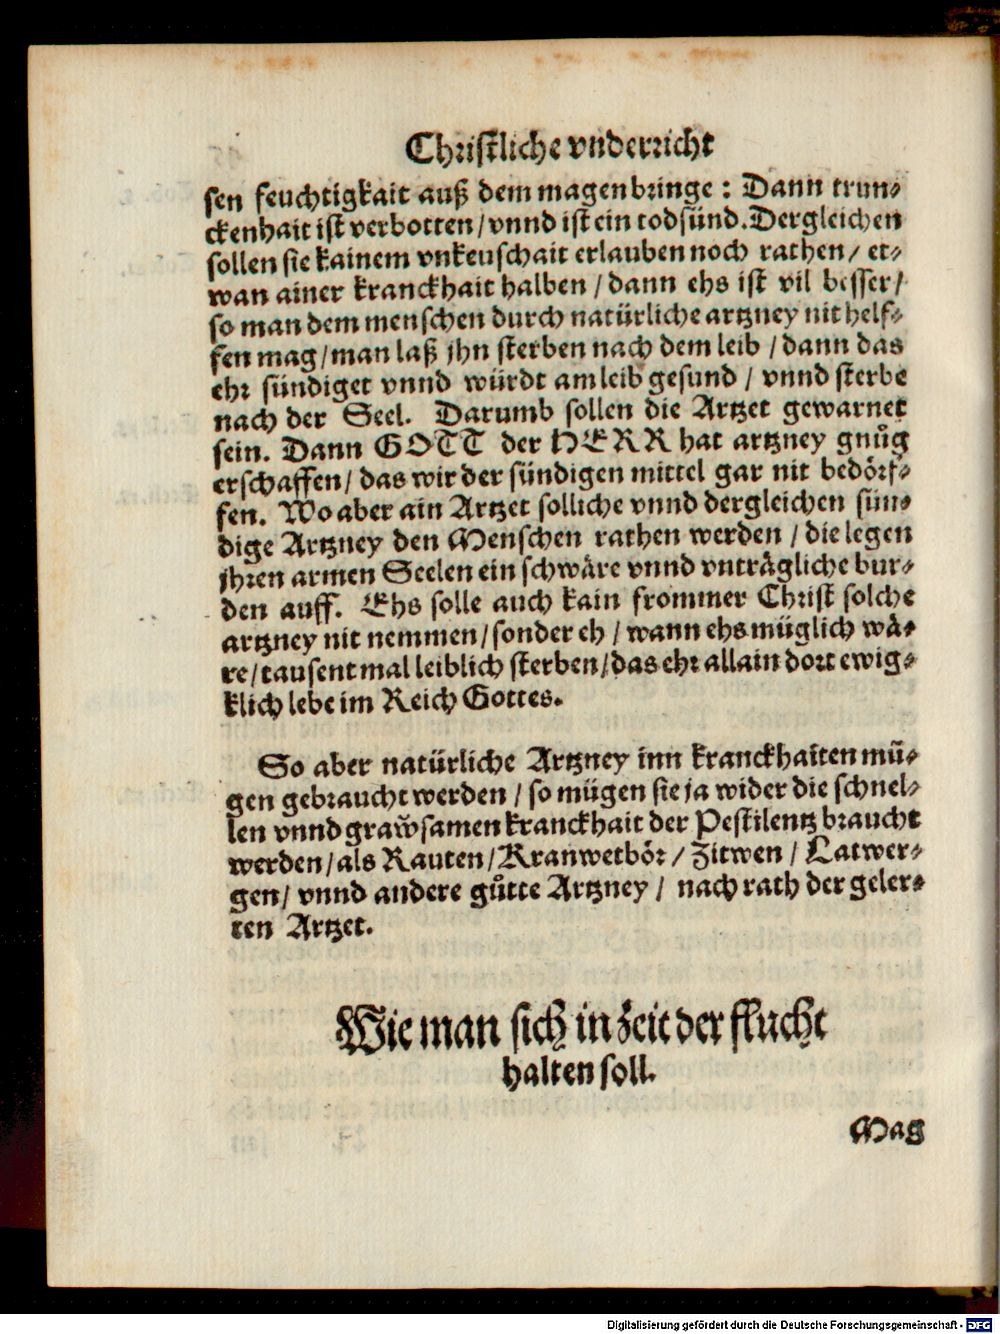 Christliche vnderricht
sen feuchtigkait auß dem magen bringe : Dann trun-
ckenhait ist verbotten / vnnd ist ein todsünd. Dergleichen
sollen sie kainem vnkeuschait erlauben noch rathen / et-
wan ainer kranckhait halben / dann ehs ist vil besser /
so man dem menschen durch natürliche artzney nit helf-
fen mag / man laß jhn sterben nach dem leib / dann das
ehr sündiget vnnd würdt am leib gesund / vnnd sterbe
nach der Seel. Darumb sollen die Artzet gewarnet
sein. Dann GOTT der HERR hat artzney gnůg
erschaffen / das wir der sündigen mittel gar nit bedörf-
fen. Wo aber ain Artzet solliche vnnd dergleichen sün-
dige Artzney den Menschen rathen werden / die legen
jhren armen Seelen ein schwäre vnnd vnträgliche bur-
den auff. Ehs solle auch kain frommer Christ solche
artzney nit nemmen / sonder eh / wann ehs müglich wä-
re / tausent mal leiblich sterben / das ehr allain dort ewig-
klich lebe im Reich Gottes.
So aber natürliche Artzney inn kranckhaiten mü-
gen gebraucht werden / so mügen sie ja wider die schnel-
len vnnd grawsamen kranckhait der Pestilentz braucht
werden / als Rauten / Kranwetbör / Zitwen / Latwer-
gen / vnnd andere gůtte Artzney / nach rath der geler-
ten Artzet.
Wie man sich in zeit der flucht
halten soll.
Mag
Digitalisierung gefördert durch die Deutsche Forschungsgemeinschaft - DFG